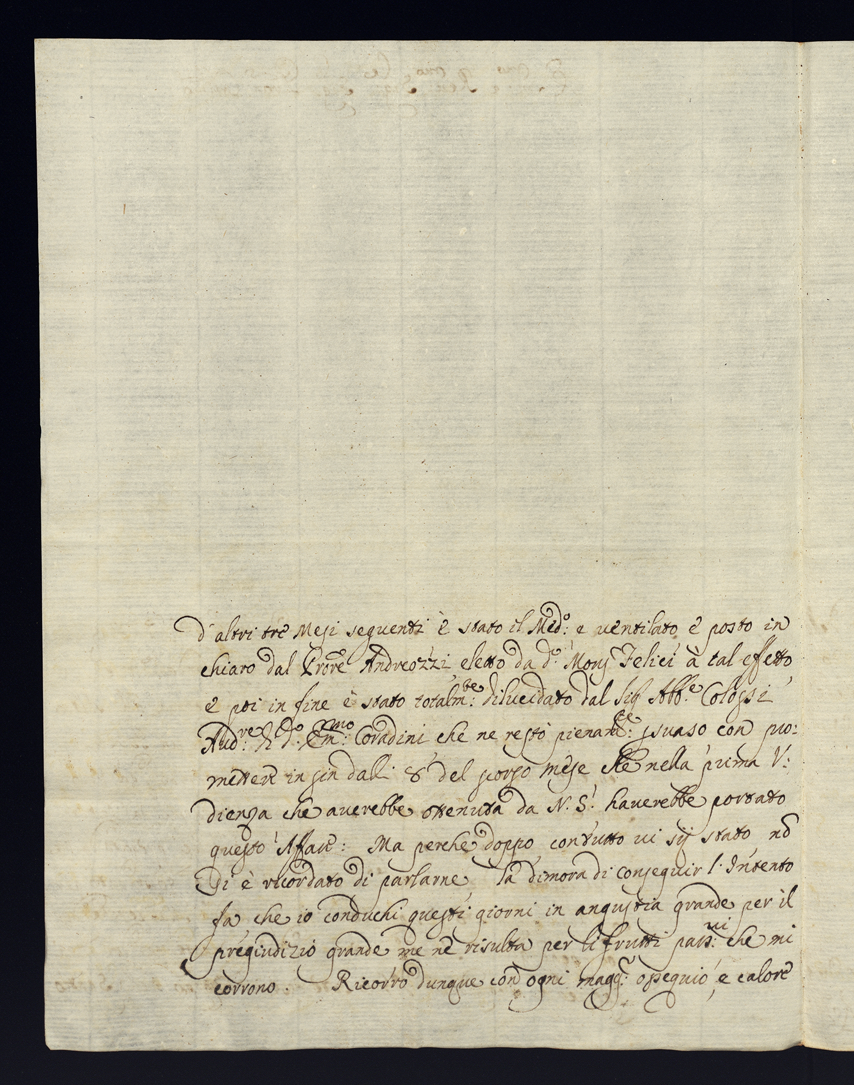 d'altri tre Mesi seguenti è stato il Med.º: e ventilato e posto in
chiaro dal Pror̃e Andreozzi eletto da d.º Mons.r Felici à tal effetto
e poi in fine è stato totalm.te: dilucidato dal Sig.r Abb.e Colossi
Aud.re: di d.º: Em.mo: Coradini che ne restò pienam.te: psuaso con pro:
metter in sin dalli 8 del scorso mese che nella prima V:
dienza che averebbe ottenuta da N. S. haverebbe portato
questo Affare: Ma perche doppo con tutto vi sij stato nõ
Si è ricordato di parlarne la dimora di conseguir l'Intento
fa che io conduchi questi giorni in angustia grande per il
pregiudizio grande me ne risulta per li frutti pass.vi: che mi
corrono. Ricorro dunque con ogni magg.r: ossequio, e calore